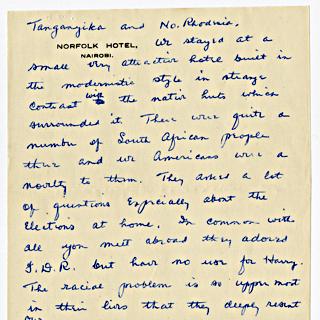 Tanganyika and No. Rhodesia.
NORFOLK HOTEL,
NAIROBI.
We stayed at a
small very attractive hotel built in
the modernistic style in strange
contrast with the native huts which
surrounded it. There were quite a
number of South African people
there and we Americans were a
novelty to them. They asked a lot
of questions Especially about the
Elections at home. In common with
all you meet abroad they adored
F.D.R. but have no use for Harry.
The racial problem is so upper most
in their lives that they deeply resent